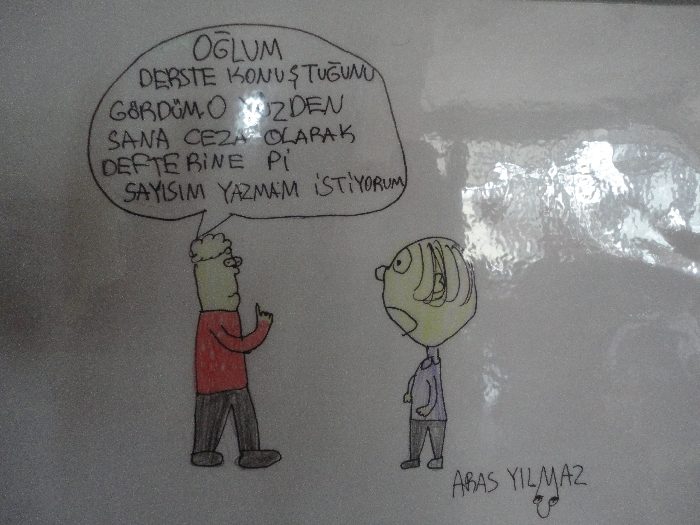 OĞLUM
DERSTE KONUŞTUĞUNU
GÖRDÜM.O YÜZDEN
SANA CEZA OLARAK
DEFTERİNE Pİ
SAYISINI YAZMANI İSTİYORUM
ARAS YILMAZ